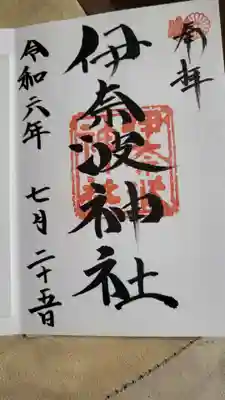 奉拝
伊奈波神社
令和六年 七月 二十五日